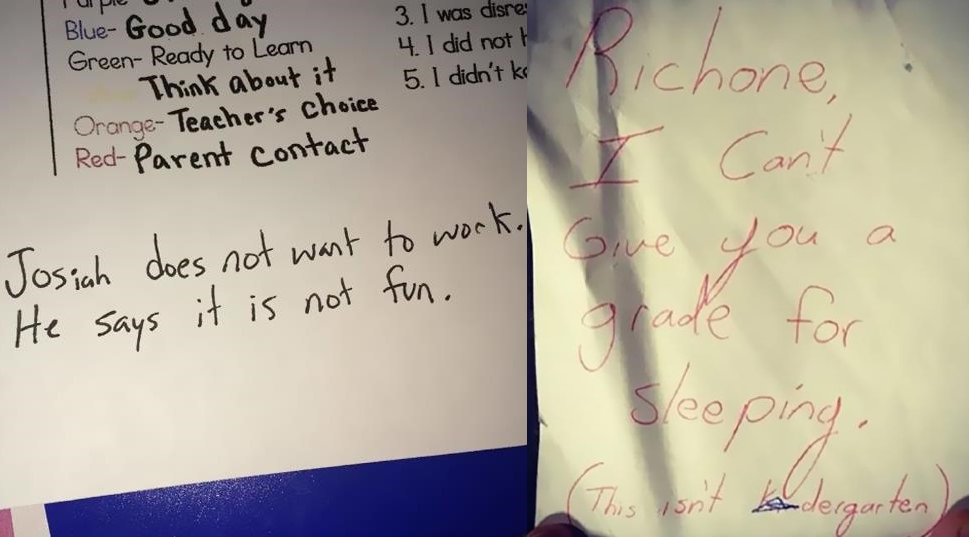 Blue- Good day
Green- Ready to Learn
Think about it
Orange- Teacher's choice
Red- Parent contact
3. I was
4. I did not
5. I didn't
Josiah does not want to work.
He says it is not fun.
Richone,
I Can't
Give you a
grade for
sleeping.
(This isn't kindergarten)